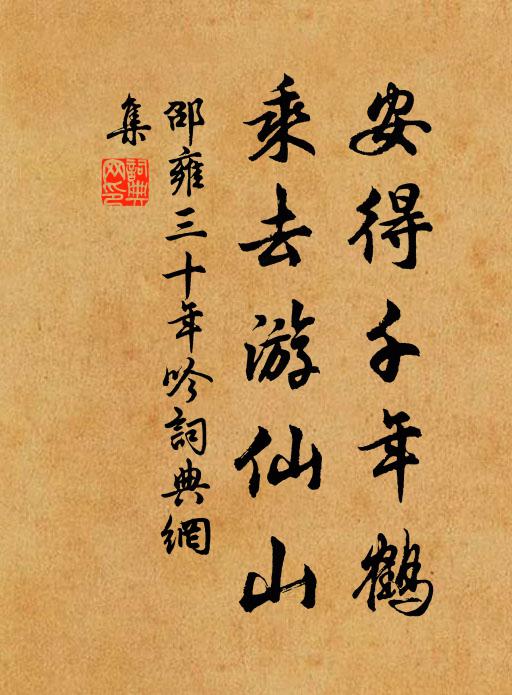 安得千年鶴
乘去游仙山
邵雍三十年吟詞典網
集
詞典
网印